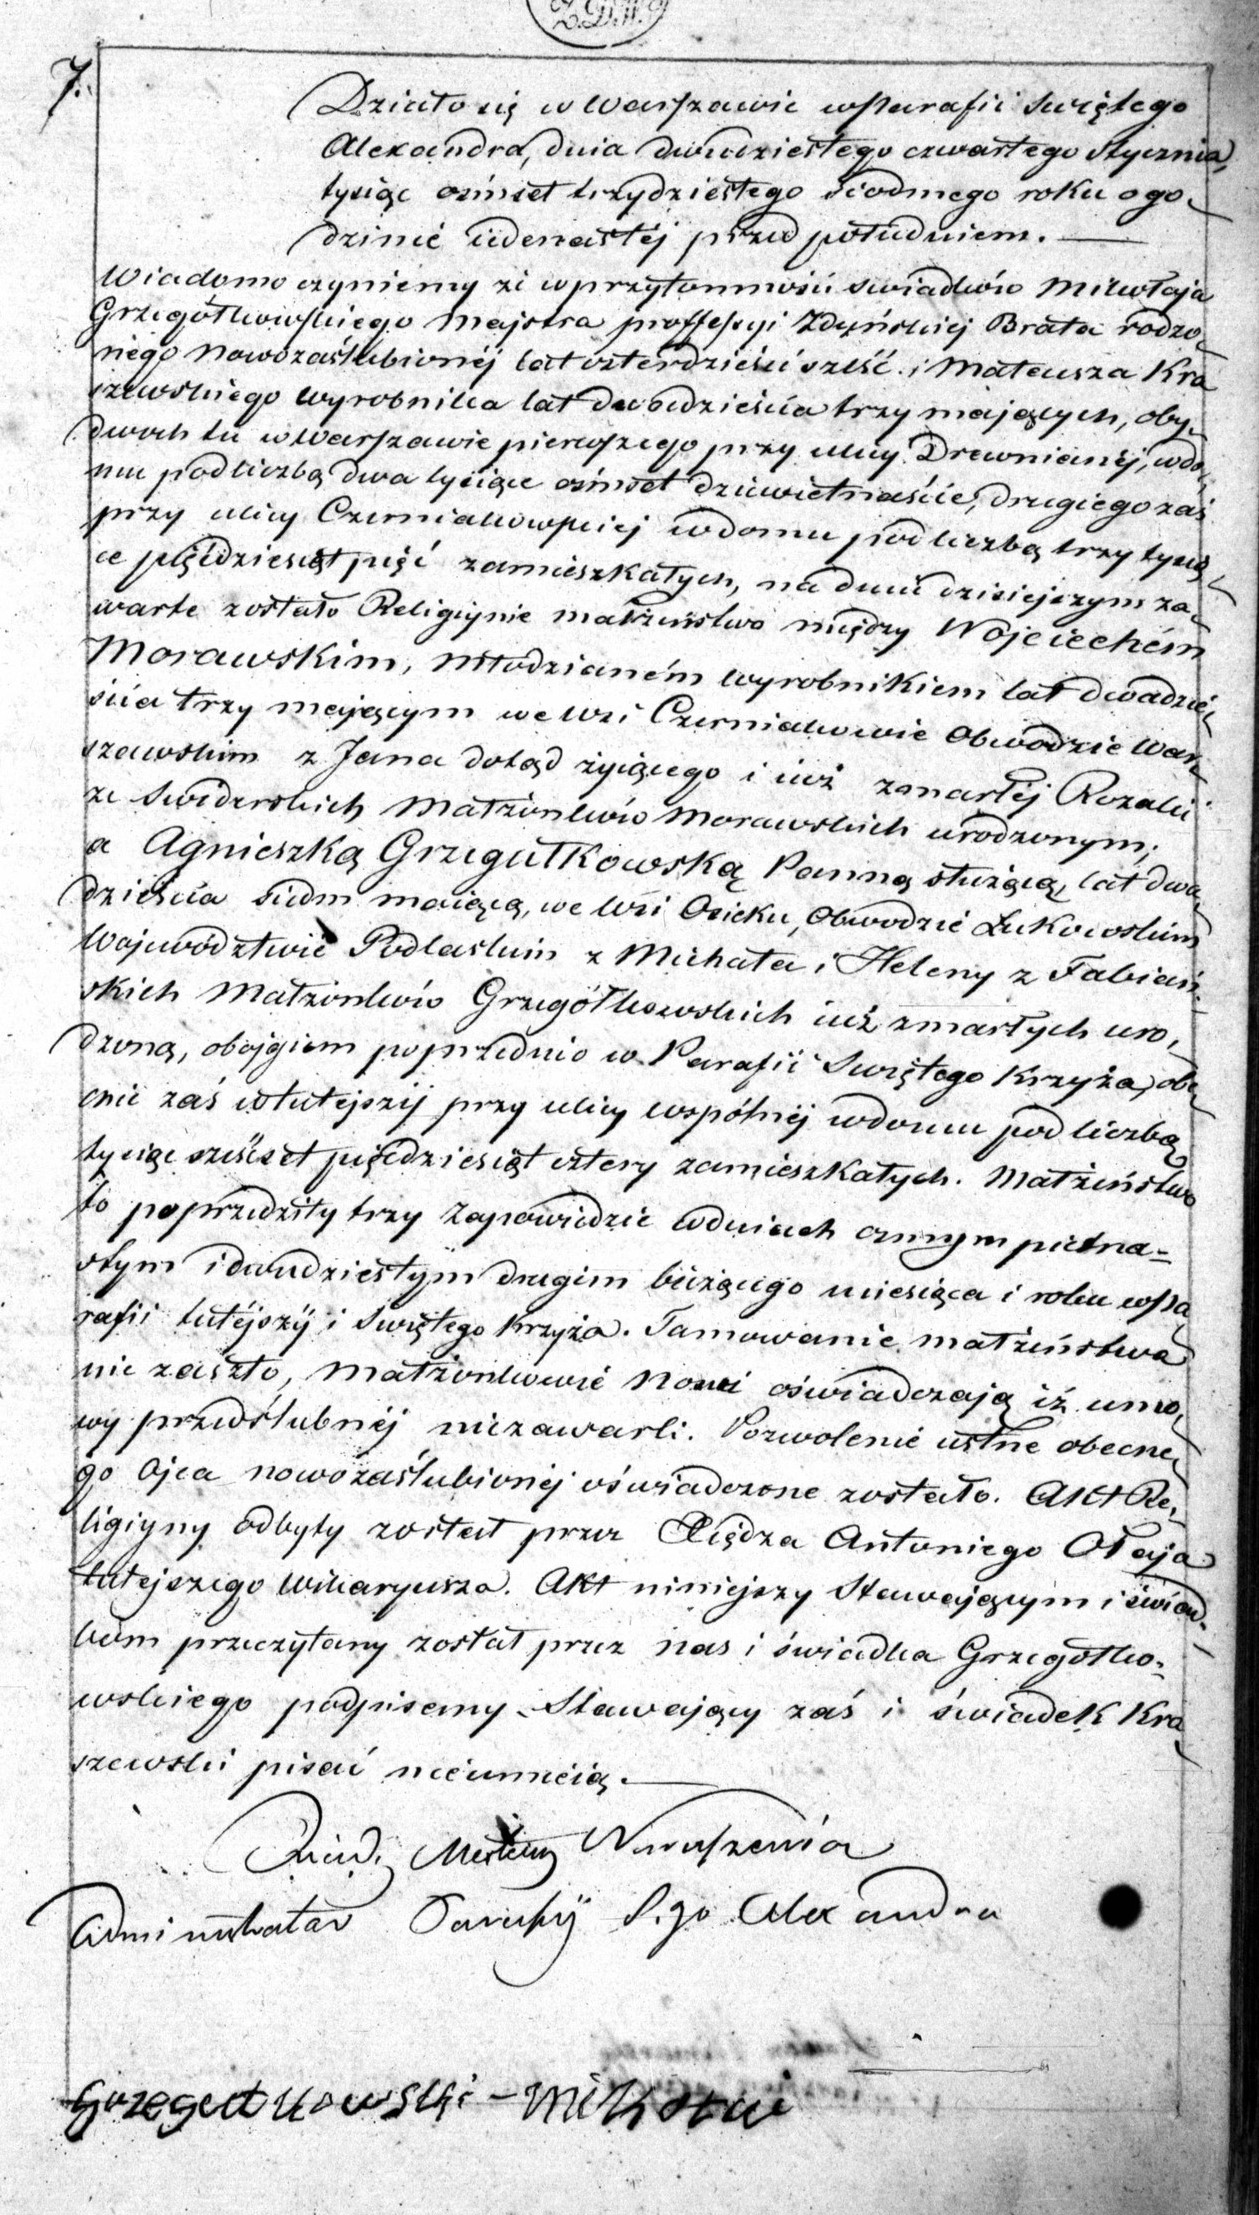 Z.D.W.
7.
Działo się w Warszawie w Parafii świętego
Alexandra, dnia dwudziestego czwartego stycznia,
tysiąc ośmset trzydziestego siodmego roku o go-
dzinie iedenastej przed południem. —
Wiadomo czyniemy że w przytomności swiadków Mikołaja
Grzegółkowskiego Majstra proffessyi Zduńskiej Brata rodzo-
nego nowozaślubionéj lat czterdzieści sześć i Mateusza Kra
szewskiego wyrobnika lat dwadzieścia trzy mających, oby-
dwoch tu w Warszawie pierwszego przy ulicy Drewnianéj, w do-
mu pod liczbą dwa tysiące ośmset dziewietnaście, drugiego zaś
przy ulicy Czerniakowskiej w domu pod liczbą trzy tysią-
ce pięćdziesiąt pięć zamieszkałych, na dniu dzisiejszym za-
warte zostało Religiynie małżeństwo między Wojciechém
Morawskim, Młodzianém wyrobnikiem lat dwadzie-
ścia trzy mającym we Wsi Czerniakowie Obwodzie War-
szawskim z Jana dotąd żyiącego i iuż zmarłéj Rozalii
ze Swiderskich Małżonków Morawskich urodzonym;
a Agnieszką Grzegułkowską Panną służącą, lat dwa-
dzieścia siedm maiącą, we Wsi Osieku, Obwodzie Łukowskim
Województwie Podlaskim z Michała i Heleny z Fabiań-
skich Małżonków Grzegółkowskich iuż zmarłych uro-
dzoną, obojgiem poprzednio w Parafii Swiętego Krzyża, obe-
cnie zaś w tutejszéj przy ulicy wspólnéj w domu pod liczbą
tysiąc sześćset pięćdziesiąt cztery zamieszkałych. Małżeństwo
to poprzedziły trzy Zapowiedzie w dniach osmym pietna-
stym i dwudziestym drugim bieżącego miesiąca i roku w Pa-
rafii tutéjszéj i Swiętego Krzyża. Tamowanie małżeństwa
nie zaszło, Małżonkowie Nowi oświadczają iż umo-
wy przedślubnéj niezawarli. Pozwolenie ustne obecne-
go Ojca nowozaślubionéj oświadczone zostało. Akt Re-
ligiyny odbyty został przez Xiędza Antoniego Ołaja
tutejszego Wikaryusza. Akt niniejszy Stawającym i świad-
kom przeczytany został przez nas i świadka Grzegółko-
wskiego podpisemy. Stawający zaś i świadek Kra-
szewski pisać nieumieią. —
Xiądz Mateusz Naruszewicz
Administrator Parafij S.go Alexandra
Grzegułkowski – Mikołaj